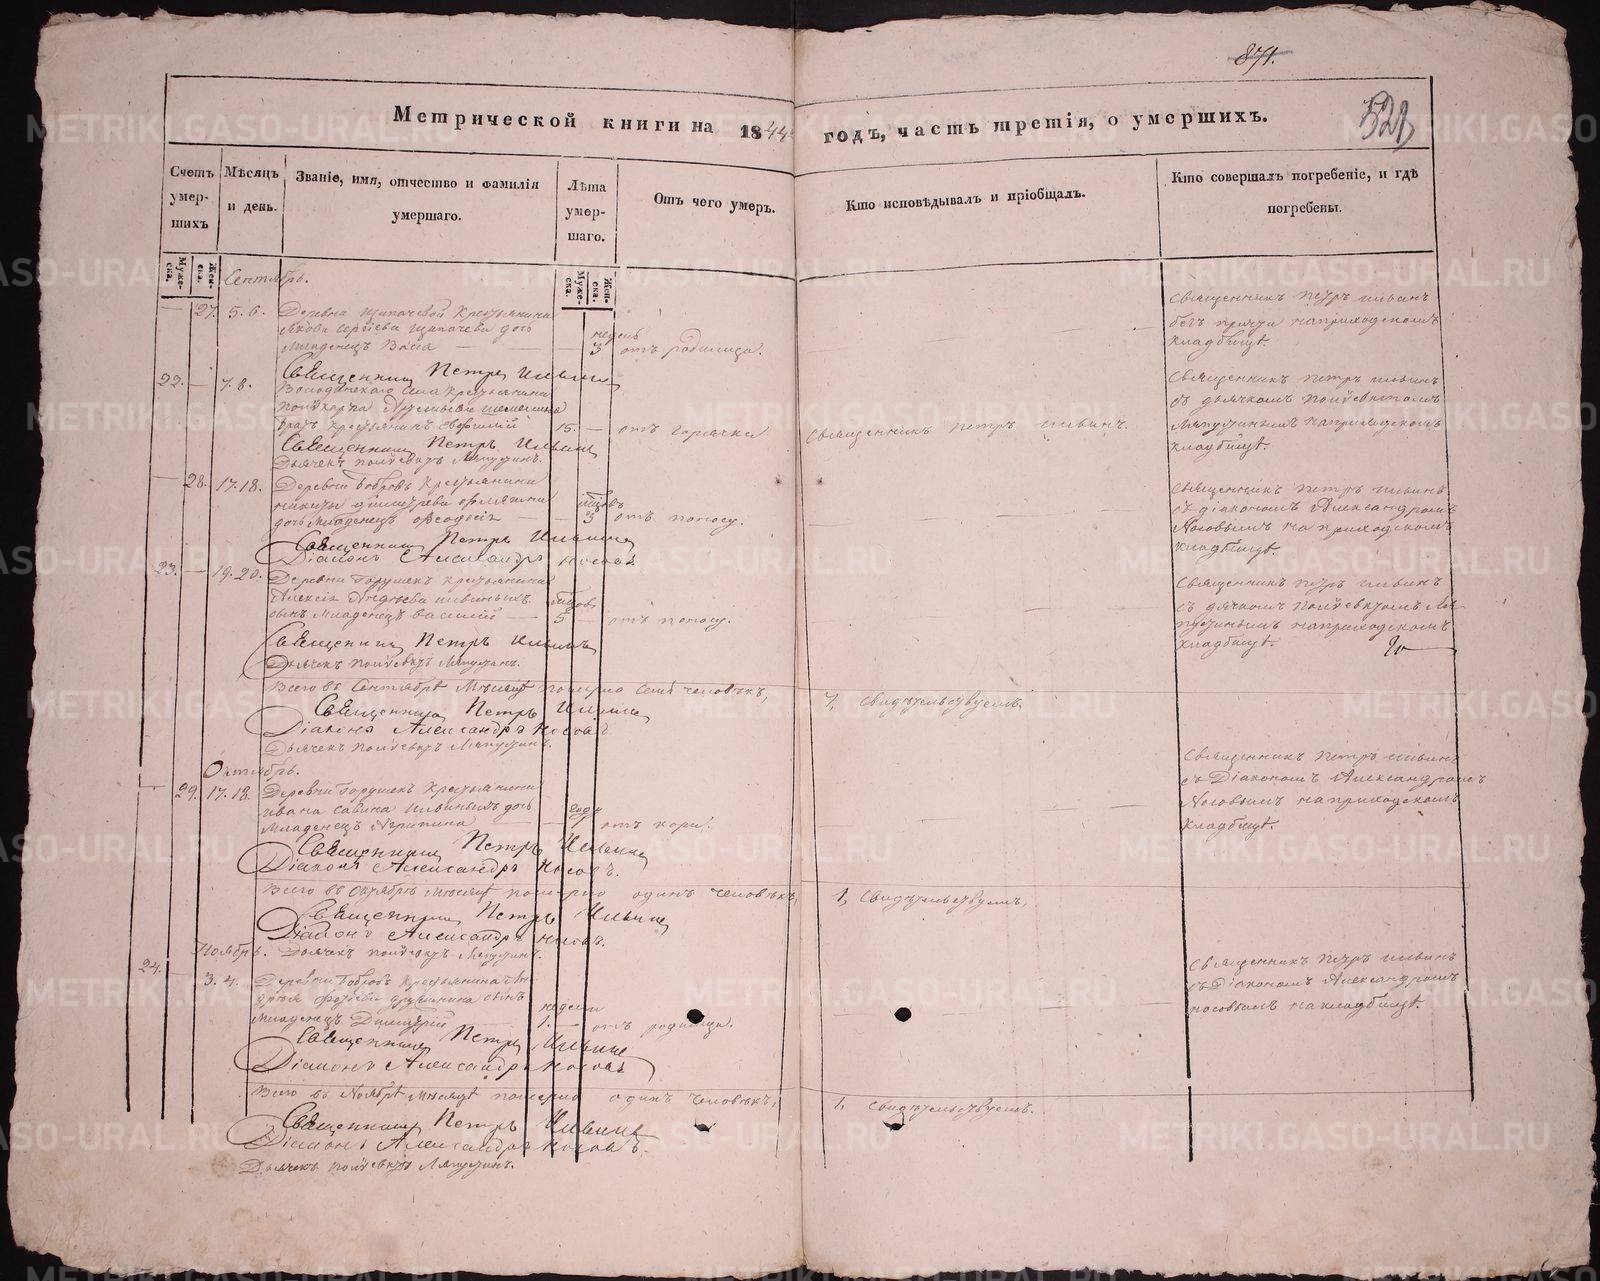 871.
521
Метрической книги на 1844 годъ, часть третія, о умершихъ.
Счетъ умер- шихъ
Мѣсяцъ и день.
Званіе, имя, отчество и фамилія умершаго.
Лѣта умер- шаго.
Отъ чего умеръ.
Кто исповѣдывалъ и пріобщалъ.
Кто совершалъ погребеніе, и гдѣ погребены.
Муже- ска.
Жен- ска.
Муже- ска.
Жен- ска.
Сентябрь.
27. 5. 6. Деревни Щипачевой крестьянина
Якова Сергѣева Щипачева дочь
недель
Младенецъ Васса 3 отъ родимца.
Священникъ Петръ Ильинъ
безъ причта на приходскомъ
кладбищѣ.
Священникъ Петръ Ильинъ
22. 7. 8. села крестьянина
Поликарпа
братъ крестьянинъ 15. отъ горячки Священникъ Петръ Ильинъ.
Священникъ Петръ Ильинъ
съ дьячкомъ Поліевктомъ
Ляпустинымъ на приходскомъ
кладбищѣ.
Священникъ Петръ Ильинъ
Дьячекъ Поліевктъ Ляпустинъ.
28. 17. 18. Деревни Бобровъ крестьянина
Никиты Димитріева
дочь Младенецъ Ѳеодосія 3 отъ поносу.
Священникъ Петръ Ильинъ
съ діакономъ Александромъ
Носовымъ на приходскомъ
кладбищѣ.
Священникъ Петръ Ильинъ
Діаконъ Александръ Носовъ
23. 19. 20. Деревни Горушекъ крестьянина
Алексія Андреева Ильиныхъ
сынъ Младенецъ Василий 5 отъ поносу.
Священникъ Петръ Ильинъ
съ дьячкомъ Поліевктомъ Ля-
пустинымъ на приходскомъ
кладбищѣ.
Священникъ Петръ Ильинъ
Дьячекъ Поліевктъ Ляпустинъ.
Всего въ Сентябрѣ Мѣсяцѣ померло семь человѣкъ, 7, свидѣтельствуемъ.
Священникъ Петръ Ильинъ
Діаконъ Александръ Носовъ
Дьячекъ Поліевктъ Ляпустинъ.
Октябрь.
29. 17. 18. Деревни Горушекъ крестьянина
Ивана Савина Ильиныхъ дочь
году
Младенецъ Агрипина 1 отъ кори.
Священникъ Петръ Ильинъ
съ Діакономъ Александромъ
Носовымъ на приходскомъ
кладбищѣ.
Священникъ Петръ Ильинъ
Діаконъ Александръ Носовъ.
Всего въ Октябрѣ Мѣсяцѣ померло одинъ человѣкъ, 1, Свидѣтельствуемъ,
Священникъ Петръ Ильинъ
Діаконъ Александръ Носовъ.
Ноябрь. Дьячекъ Поліевктъ Ляпустинъ.
24. 3. 4. Деревни Бобровъ крестьянина
сынъ
недели
Младенецъ Димитрій 1. отъ родимца.
Священникъ Петръ Ильинъ
съ Діакономъ Александромъ
Носовымъ на кладбищѣ.
Священникъ Петръ Ильинъ
Діаконъ Александръ Носовъ
Всего въ Ноябрѣ Мѣсяцѣ померло одинъ человѣкъ, 1, свидѣтельствуемъ.
Священникъ Петръ Ильинъ
Діаконъ Александръ Носовъ.
Дьячекъ Поліевктъ Ляпустинъ.
METRIKI.GASO-URAL.RU